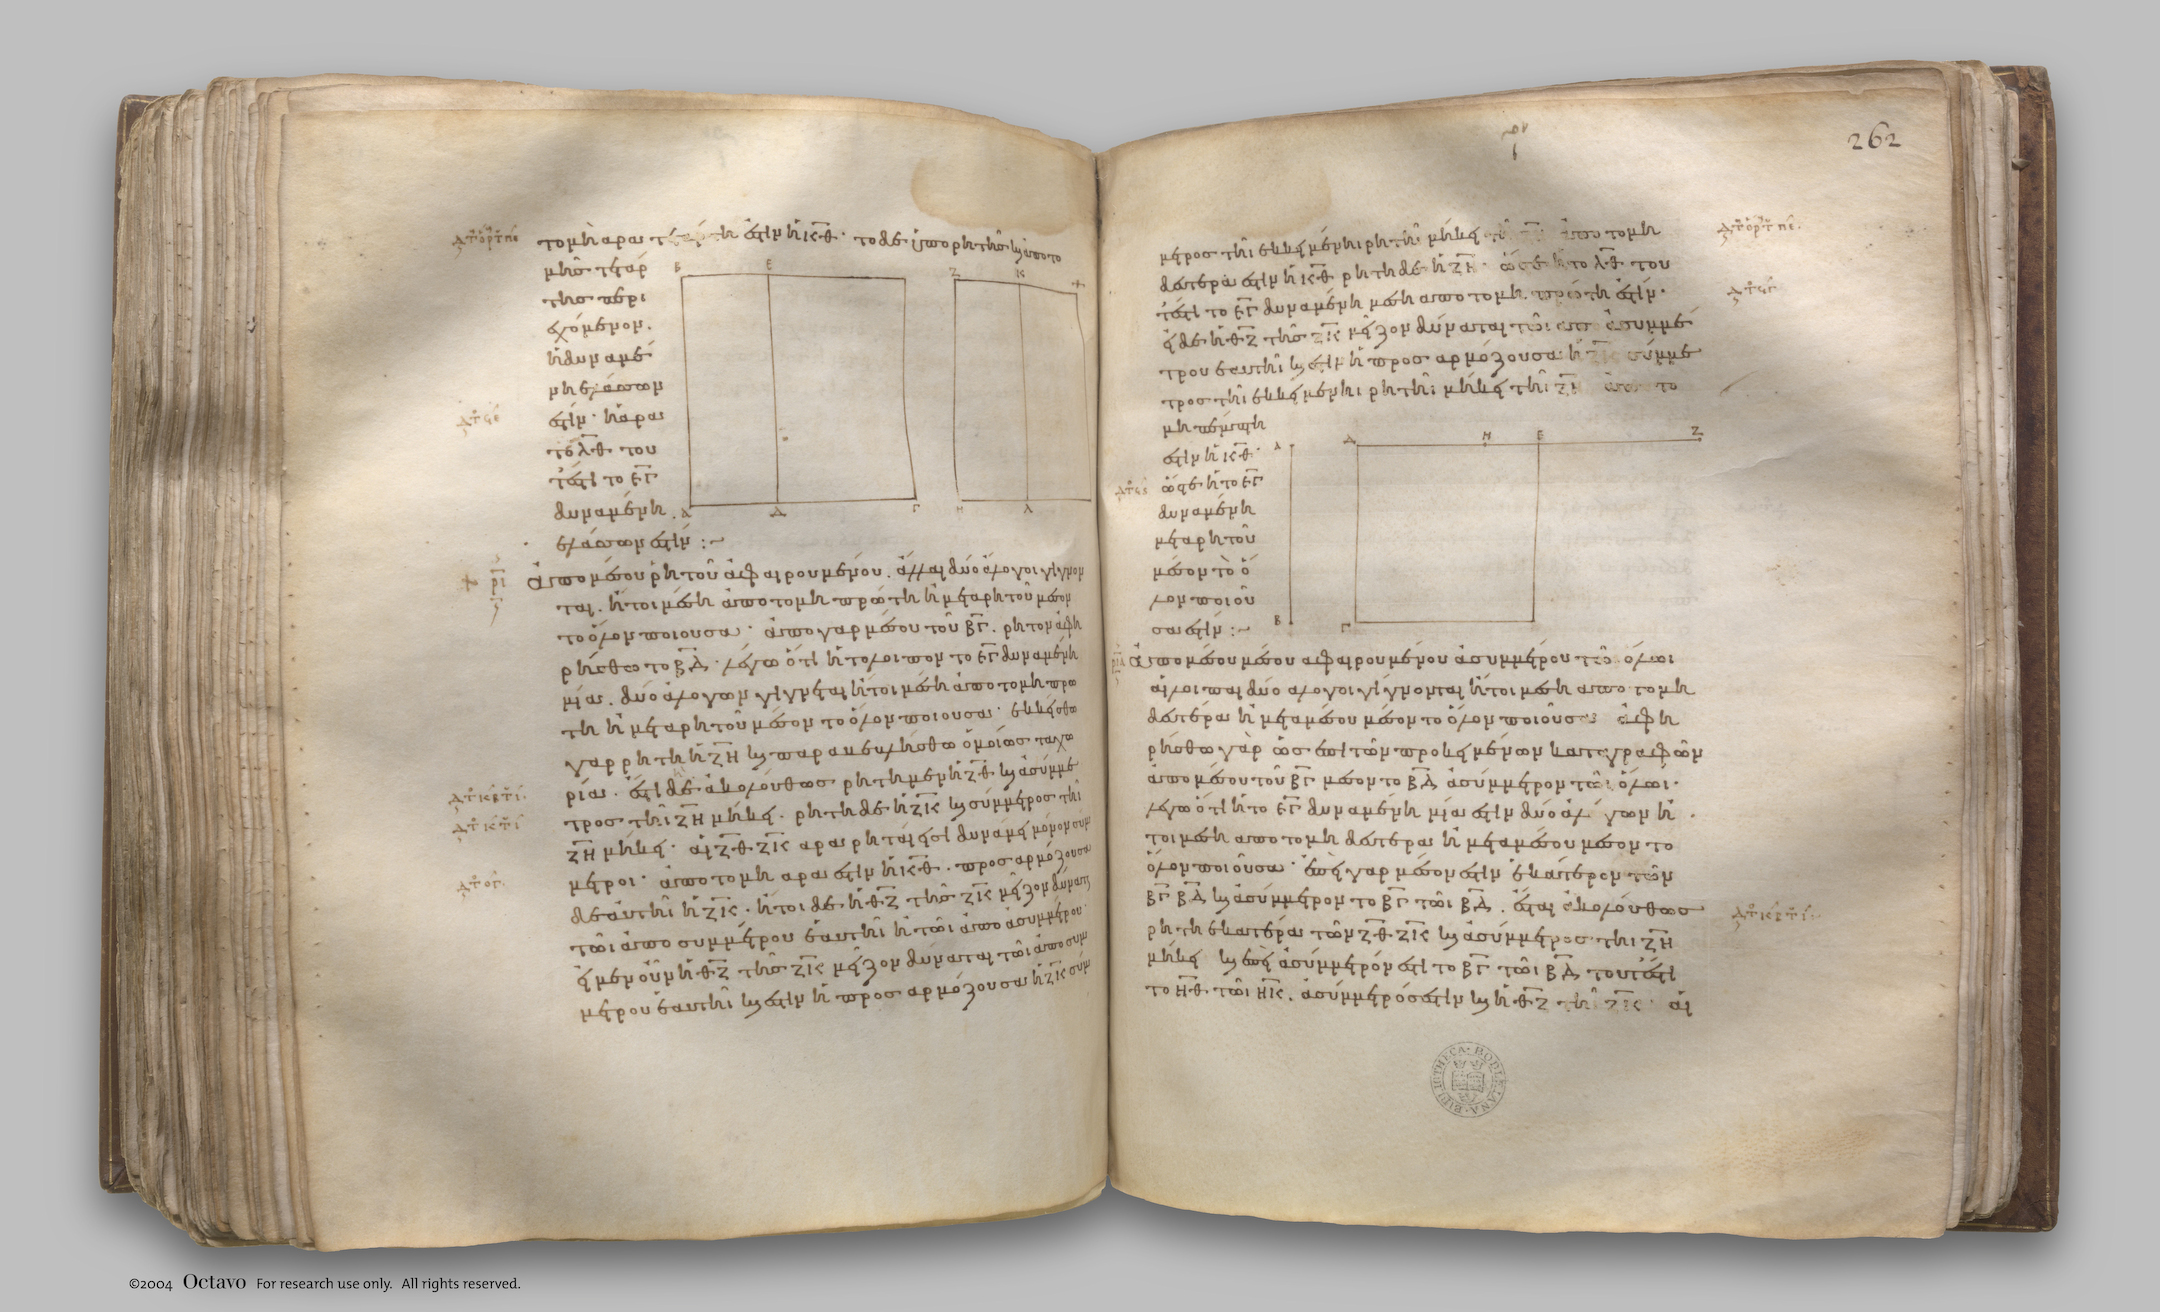 τομὴ ἄρα ἐστὶν ἡ ΚΘ· τὸ δὲ ὑπὸ ῥητῆς καὶ ἀπὸ το
μῆς τετάρ
της περι
εχόμενον.
ἡ δυναμέ
νη ἐλάσσων
ἐστίν· ἡ ἄρα
τὸ ΛΘ του
τέστι τὸ ΕΓ
δυναμένη
ἐλάσσων ἐστίν :~
Β Ε Ζ Κ
Α Δ Γ Λ
ρι
Ἀπὸ μέσου ῥητοῦ ἀφαιρουμένου. ἄλλαι δύο ἄλογοι γίγνον
ται. ἤτοι μέση ἀποτομὴ πρώτη ἢ μετὰ ῥητοῦ μέσον
τὸ ὅλον ποιοῦσα· ἀπὸ γὰρ μέσου τοῦ ΒΓ. ῥητὸν ἀφη
ρήσθω τὸ ΒΔ· λέγω ὅτι ἡ τὸ λοιπὸν τὸ ΕΓ δυναμένη
μία. δύο ἀλόγων γίγνεται ἤτοι μέση ἀποτομὴ πρώ
τη ἢ μετὰ ῥητοῦ μέσον τὸ ὅλον ποιοῦσα· ἐκκείσθω
γὰρ ῥητὴ ἡ ΖΗ καὶ παραβεβλήσθω ὁμοίως τὰ χω
ρία. ἔστι δὲ ἀκολούθως ῥητὴ μὲν ἡ ΖΘ καὶ ἀσύμμε
τρος τῆι ΖΗ μήκει. ῥητὴ δὲ ἡ ΖΚ καὶ σύμμετρος τῆι
ΖΗ μήκει· αἱ ΖΘ ΖΚ ἄρα ῥηταί εἰσι δυνάμει μόνον σύμ
μετροι· ἀποτομὴ ἄρα ἐστὶν ἡ ΚΘ. προσαρμόζουσα
δὲ αὐτῆι ἡ ΖΚ. ἤτοι δὲ ἡ ΘΖ τῆς ΖΚ μεῖζον δύναται
τῶι ἀπὸ συμμέτρου ἑαυτῆι ἢ τῶι ἀπὸ ἀσυμμέτρου·
εἰ μὲν οὖν ἡ ΘΖ τῆς ΖΚ μεῖζον δύναται τῶι ἀπὸ συμ
μέτρου ἑαυτῆι καὶ ἐστιν ἡ προσαρμόζουσα ἡ ΖΚ σύμ
262
μετρος τῆι ἐκκειμένηι ῥητῆι μήκει τῆι ΖΗ ἀποτομὴ
δευτέρα ἐστὶν ἡ ΚΘ ῥητὴ δὲ ἡ ΖΗ· ὥστε ἡ τὸ ΛΘ του
τέστι τὸ ΕΓ δυναμένη μέση ἀποτομὴ πρώτη ἐστίν·
εἰ δὲ ἡ ΘΖ τῆς ΖΚ μεῖζον δύναται τῶι ἀπὸ ἀσυμμέ
τρου ἑαυτῆι καὶ ἐστιν ἡ προσαρμόζουσα ἡ ΖΚ σύμμε
τρος τῆι ἐκκειμένηι ῥητῆι μήκει τῆι ΖΗ ἀποτο
μὴ πέμπτη
ἐστὶν ἡ ΚΘ·
ὥστε ἡ τὸ ΕΓ
δυναμένη
μετὰ ῥητοῦ
μέσον τὸ ὅ
λον ποιοῦ
σά ἐστιν :~
Α Δ Η Ε Ζ
Β Γ
ρια
Ἀπὸ μέσου μέσου ἀφαιρουμένου ἀσυμμέτρου τῶι ὅλωι
αἱ λοιπαὶ δύο ἄλογοι γίγνονται ἤτοι μέση ἀποτομὴ
δευτέρα ἢ μετὰ μέσου μέσον τὸ ὅλον ποιοῦσα ἀφη
ρήσθω γὰρ ὡς ἐπὶ τῶν προκειμένων καταγραφῶν
ἀπὸ μέσου τοῦ ΒΓ μέσον τὸ ΒΔ ἀσύμμετρον τῶι ὅλωι·
λέγω ὅτι ἡ τὸ ΕΓ δυναμένη μία ἐστὶν δύο ἀλόγων ἤ
τοι μέση ἀποτομὴ δευτέρα ἢ μετὰ μέσου μέσον τὸ
ὅλον ποιοῦσα· ἐπεὶ γὰρ μέσον ἐστὶν ἑκάτερον τῶν
ΒΓ ΒΔ καὶ ἀσύμμετρον τὸ ΒΓ τῶι ΒΔ. ἔσται ἀκολούθως
ῥητὴ ἑκατέρα τῶν ΖΘ ΖΚ καὶ ἀσύμμετρος τῆι ΖΗ
μήκει καὶ ἐπεὶ ἀσύμμετρόν ἐστι τὸ ΒΓ τῶι ΒΔ τουτέστι
τὸ ΗΘ τῶι ΗΚ. ἀσύμμετρός ἐστιν καὶ ἡ ΘΖ τῆι ΖΚ· αἱ
BIBLIOTHECA·BODLEIANA·
©2004 Octavo For research use only. All rights reserved.